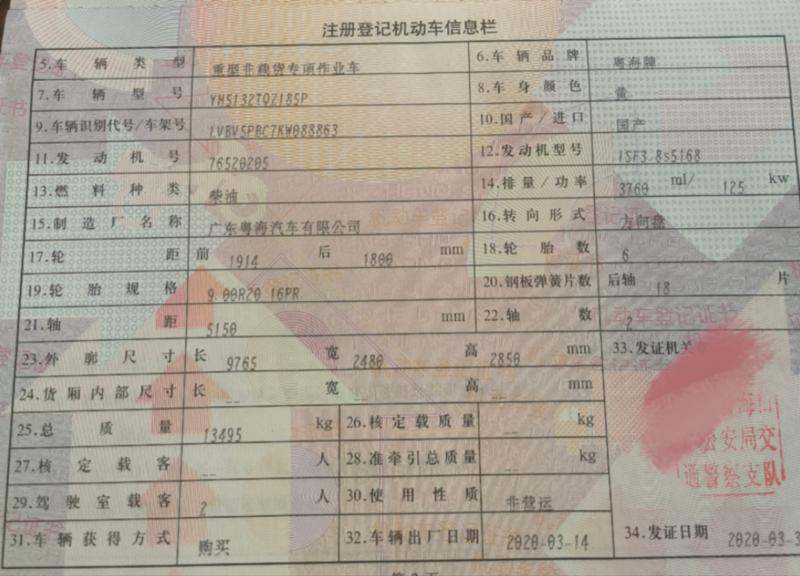 注册登记机动车信息栏
5.车辆类型 重型非载货专项作业车 6.车辆品牌 粤海牌
7.车辆型号 YH5132TQZ185P 8.车身颜色 黄
9.车辆识别代号/车架号 LVBV5PBC7KW088863 10.国产/进口 国产
11.发动机号 76520205 12.发动机型号 ISF3.8s5168
13.燃料种类 柴油 14.排量/功率 3760 ml/ 125 kw
15.制造厂名称 广东粤海汽车有限公司 16.转向形式 方向盘
17.轮距 前 1914 后 1800 mm 18.轮胎数 6
19.轮胎规格 9.00R20 16PR 20.钢板弹簧片数 后轴 18 片
21.轴距 5150 mm 22.轴数 2
23.外廓尺寸 长 9765 宽 2480 高 2850 mm 33.发证机关
24.货厢内部尺寸 长 -- 宽 -- 高 -- mm
25.总质量 13495 kg 26.核定载质量 -- kg
公安局交
27.核定载客 -- 人 28.准牵引总质量 -- kg
通警察支队
29.驾驶室载客 2 人 30.使用性质 非营运
31.车辆获得方式 购买 32.车辆出厂日期 2020-03-14 34.发证日期 2020-03-3